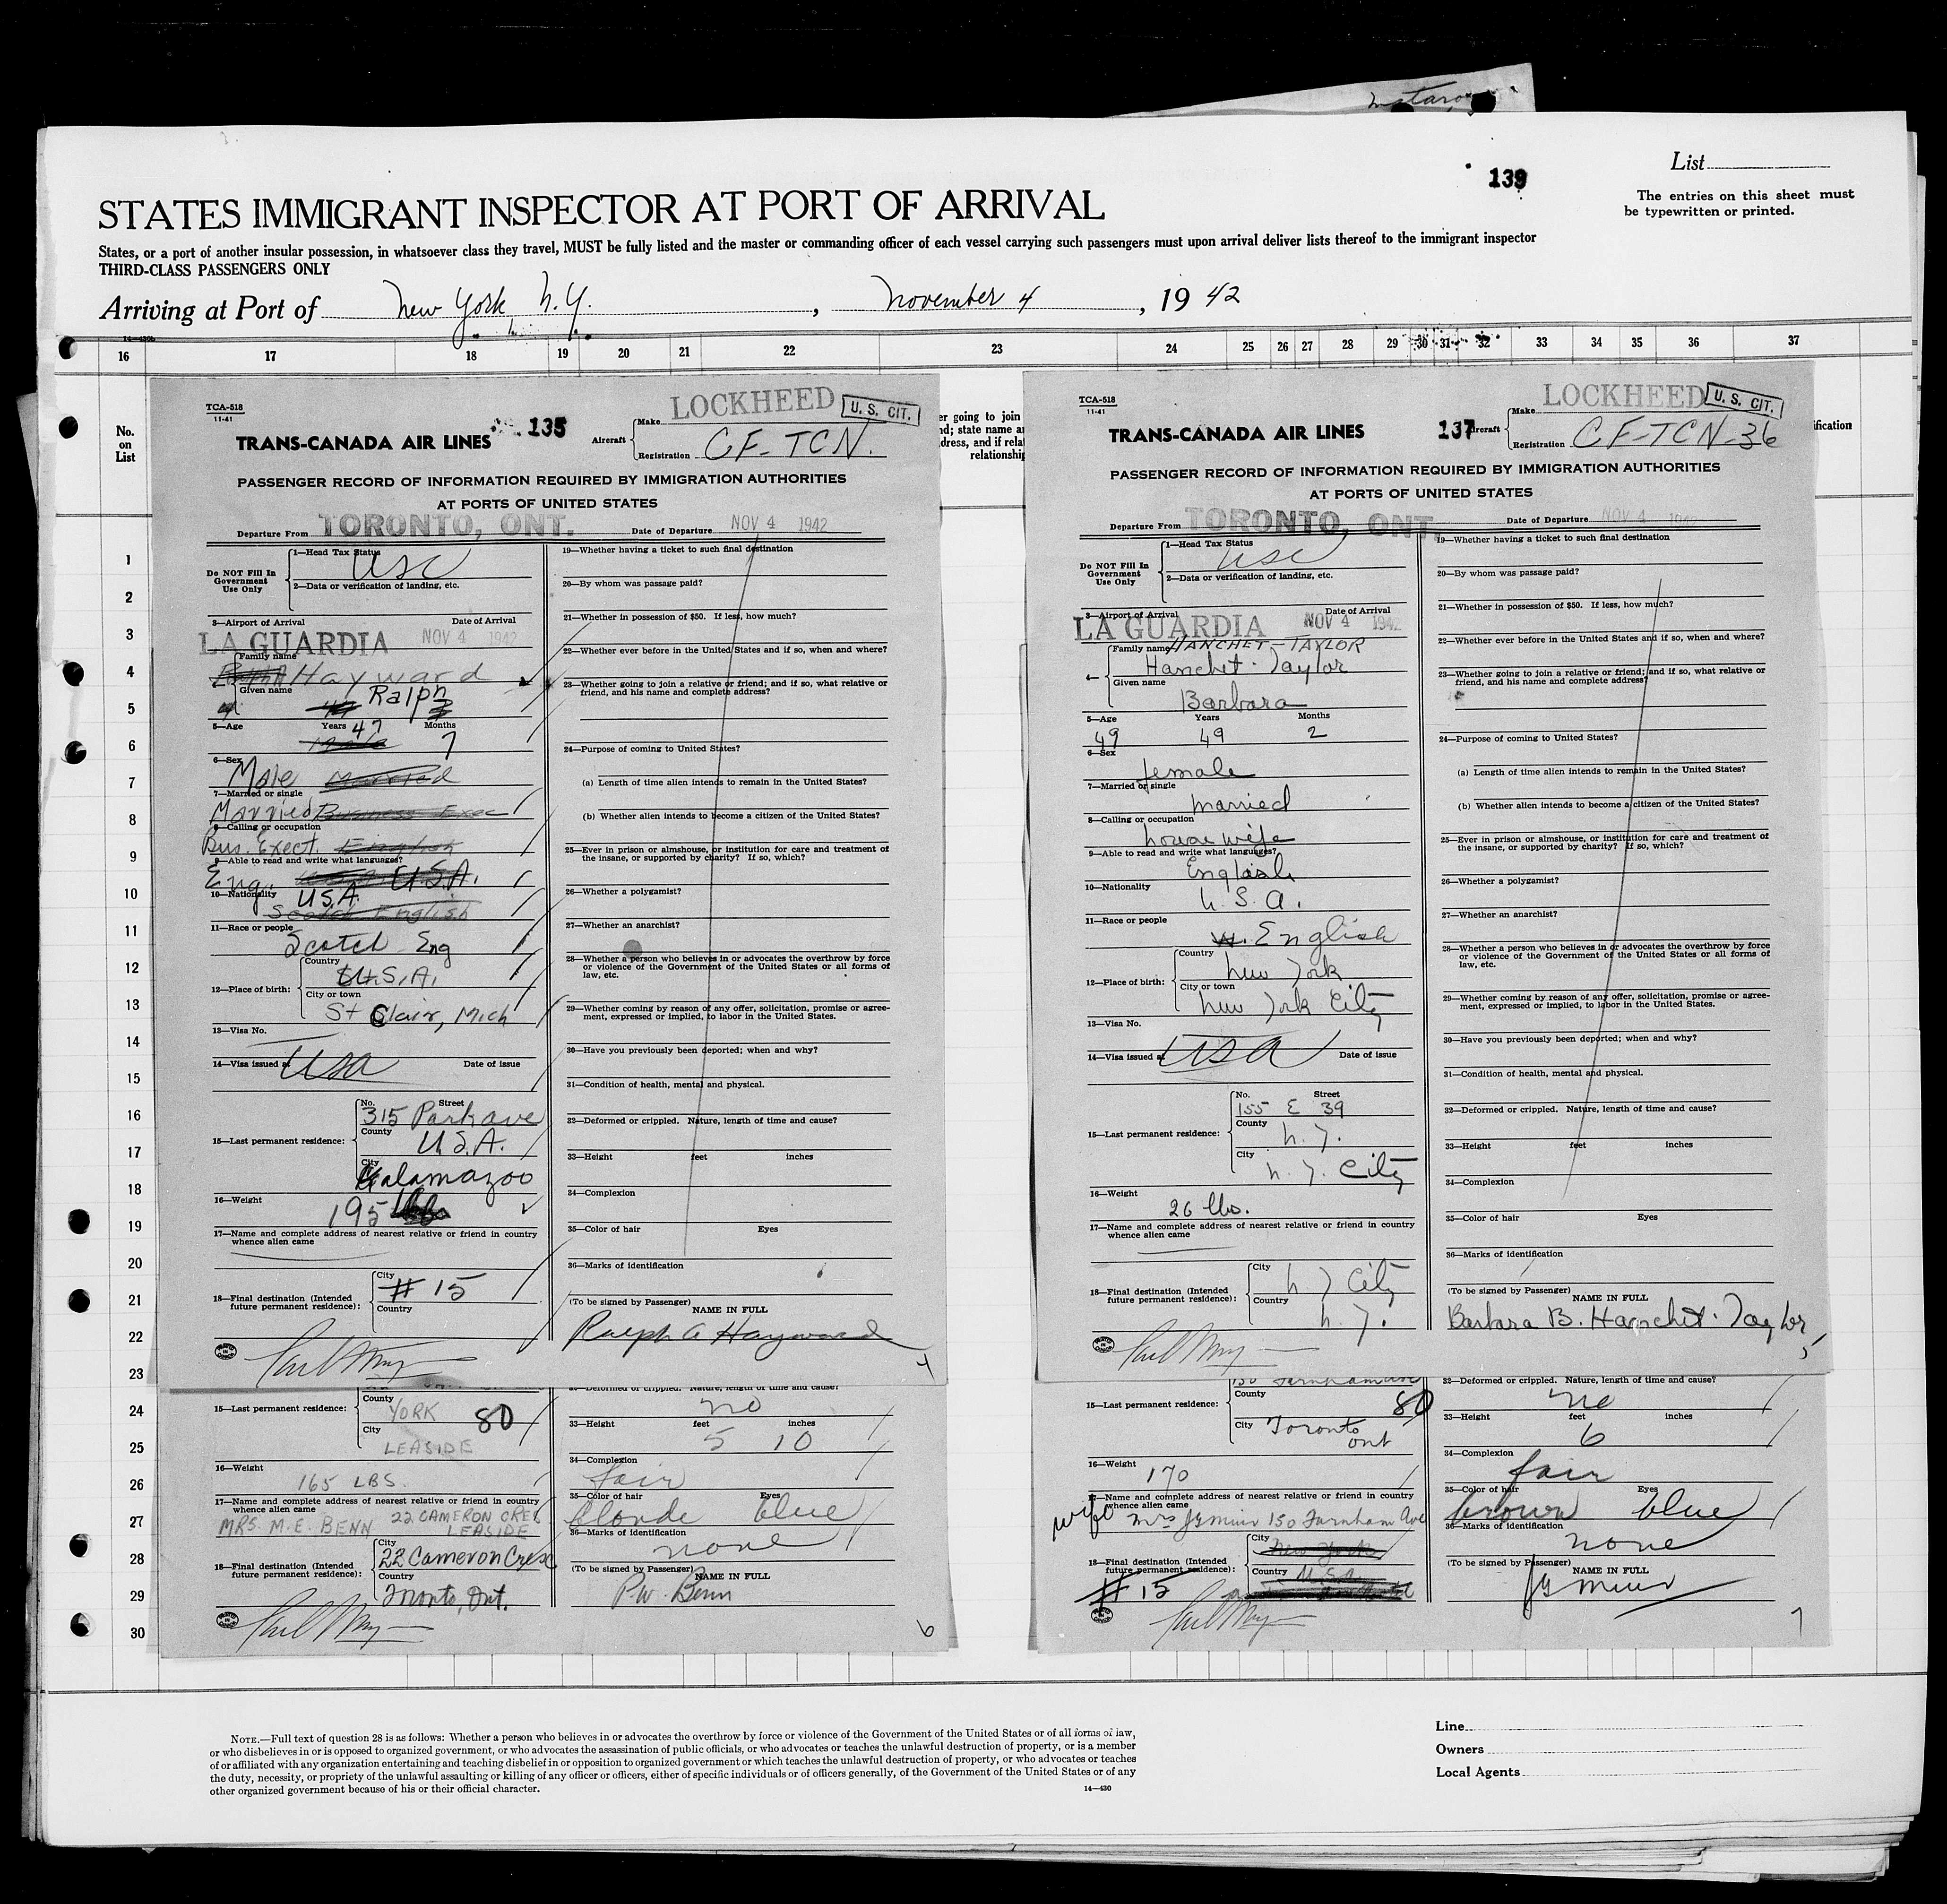 139
List
The entries on this sheet must
be typewritten or printed.
STATES IMMIGRANT INSPECTOR AT PORT OF ARRIVAL
States, or a port of another insular possession, in whatsoever class they travel, MUST be fully listed and the master or commanding officer of each vessel carrying such passengers must upon arrival deliver lists thereof to the immigrant inspector
THIRD-CLASS PASSENGERS ONLY
Arriving at Port of New York N.Y. , November 4 , 19 42
16 17 18 19 20 21 22 23 24 25 26 27 28 29 30 31 32 33 34 35 36 37
No.
on
List
1
2
3
4
5
6
7
8
9
10
11
12
13
14
15
16
17
18
19
20
21
22
23
24
25
26
27
28
29
30
TCA-518
11-41
135
LOCKHEED
U. S. CIT.
TRANS-CANADA AIR LINES
Aircraft
Make
Registration CF-TCN.
PASSENGER RECORD OF INFORMATION REQUIRED BY IMMIGRATION AUTHORITIES
AT PORTS OF UNITED STATES
Departure From TORONTO, ONT. Date of Departure NOV 4 1942
Do NOT Fill In
Government
Use Only
1—Head Tax Status
USC
2—Data or verification of landing, etc.
3—Airport of Arrival Date of Arrival
LA GUARDIA NOV 4 1942
Family name
Hayward
Given name
Ralph
5—Age Years Months
47 7
6—Sex
Male
7—Married or single
Married
8—Calling or occupation
Bus. Exect.
9—Able to read and write what languages?
Eng. U.S.A.
10—Nationality
U.S.A.
Scotch English
11—Race or people
Scotch Eng
12—Place of birth:
Country
U.S.A.
City or town
St Clair, Mich
13—Visa No.
14—Visa issued at Date of issue
USA
15—Last permanent residence:
No. Street
315 Park ave
County
U.S.A.
City
Kalamazoo
16—Weight
195
17—Name and complete address of nearest relative or friend in country
whence alien came
18—Final destination (Intended
future permanent residence):
City
# 15
Country
19—Whether having a ticket to such final destination
20—By whom was passage paid?
21—Whether in possession of $50. If less, how much?
22—Whether ever before in the United States and if so, when and where?
23—Whether going to join a relative or friend; and if so, what relative or
friend, and his name and complete address?
24—Purpose of coming to United States?
(a) Length of time alien intends to remain in the United States?
(b) Whether alien intends to become a citizen of the United States?
25—Ever in prison or almshouse, or institution for care and treatment of
the insane, or supported by charity? If so, which?
26—Whether a polygamist?
27—Whether an anarchist?
28—Whether a person who believes in or advocates the overthrow by force
or violence of the Government of the United States or all forms of
law, etc.
29—Whether coming by reason of any offer, solicitation, promise or agree-
ment, expressed or implied, to labor in the United States.
30—Have you previously been deported; when and why?
31—Condition of health, mental and physical.
32—Deformed or crippled. Nature, length of time and cause?
33—Height feet inches
34—Complexion
35—Color of hair Eyes
36—Marks of identification
(To be signed by Passenger)
NAME IN FULL
Ralph A Hayward
4
15—Last permanent residence:
County
YORK
80
City
LEASIDE
16—Weight
165 LBS.
17—Name and complete address of nearest relative or friend in country
whence alien came
MRS. M.E. BENN 22 CAMERON CRES.
LEASIDE
18—Final destination (Intended
future permanent residence):
City
22 Cameron Cres
Country
Toronto, Ont.
32—Deformed or crippled. Nature, length of time and cause?
no
33—Height feet inches
5 10
34—Complexion
fair
35—Color of hair Eyes
blonde blue
36—Marks of identification
none
(To be signed by Passenger)
NAME IN FULL
P.W. Benn
6
er going to join
nd; state name a
dress, and if rela
relationship
TCA-518
11-41
137
LOCKHEED
U. S. CIT.
TRANS-CANADA AIR LINES
Aircraft
Make
Registration CF-TCN-36
PASSENGER RECORD OF INFORMATION REQUIRED BY IMMIGRATION AUTHORITIES
AT PORTS OF UNITED STATES
Departure From TORONTO, ONT. Date of Departure NOV 4 1942
Do NOT Fill In
Government
Use Only
1—Head Tax Status
USC
2—Data or verification of landing, etc.
3—Airport of Arrival Date of Arrival
LA GUARDIA NOV 4 1942
Family name HANCHET-TAYLOR
Hanchet-Taylor
4—
Given name
Barbara
5—Age Years Months
49 49 2
6—Sex
female
7—Married or single
married
8—Calling or occupation
housewife
9—Able to read and write what languages?
English
10—Nationality
U.S.A.
11—Race or people
English
12—Place of birth:
Country
New York
City or town
New York City
13—Visa No.
14—Visa issued at Date of issue
USA
15—Last permanent residence:
No. Street
155 E 39
County
N.Y.
City
N.Y. City
16—Weight
26 lbs.
17—Name and complete address of nearest relative or friend in country
whence alien came
18—Final destination (Intended
future permanent residence):
City
N Y City
Country
N.Y.
19—Whether having a ticket to such final destination
20—By whom was passage paid?
21—Whether in possession of $50. If less, how much?
22—Whether ever before in the United States and if so, when and where?
23—Whether going to join a relative or friend; and if so, what relative or
friend, and his name and complete address?
24—Purpose of coming to United States?
(a) Length of time alien intends to remain in the United States?
(b) Whether alien intends to become a citizen of the United States?
25—Ever in prison or almshouse, or institution for care and treatment of
the insane, or supported by charity? If so, which?
26—Whether a polygamist?
27—Whether an anarchist?
28—Whether a person who believes in or advocates the overthrow by force
or violence of the Government of the United States or all forms of
law, etc.
29—Whether coming by reason of any offer, solicitation, promise or agree-
ment, expressed or implied, to labor in the United States.
30—Have you previously been deported; when and why?
31—Condition of health, mental and physical.
32—Deformed or crippled. Nature, length of time and cause?
33—Height feet inches
34—Complexion
35—Color of hair Eyes
36—Marks of identification
(To be signed by Passenger)
NAME IN FULL
Barbara B. Hanchet-Taylor
5
15—Last permanent residence:
150 Farnham Ave
County
80
City
Toronto
ont
16—Weight
170
17—Name and complete address of nearest relative or friend in country
whence alien came
wife Mrs JG Muir 150 Farnham Ave
18—Final destination (Intended
future permanent residence):
City
New York
Country
U.S.A.
# 15
32—Deformed or crippled. Nature, length of time and cause?
no
33—Height feet inches
6
34—Complexion
fair
35—Color of hair Eyes
brown blue
36—Marks of identification
none
(To be signed by Passenger)
NAME IN FULL
JG Muir
7
ification
NOTE.—Full text of question 28 is as follows: Whether a person who believes in or advocates the overthrow by force or violence of the Government of the United States or of all forms of law,
or who disbelieves in or is opposed to organized government, or who advocates the assassination of public officials, or who advocates or teaches the unlawful destruction of property, or is a member
of or affiliated with any organization entertaining and teaching disbelief in or opposition to organized government or which teaches the unlawful destruction of property, or who advocates or teaches
the duty, necessity, or propriety of the unlawful assaulting or killing of any officer or officers, either of specific individuals or of officers generally, of the Government of the United States or of any
other organized government because of his or their official character.
14—430
Line
Owners
Local Agents